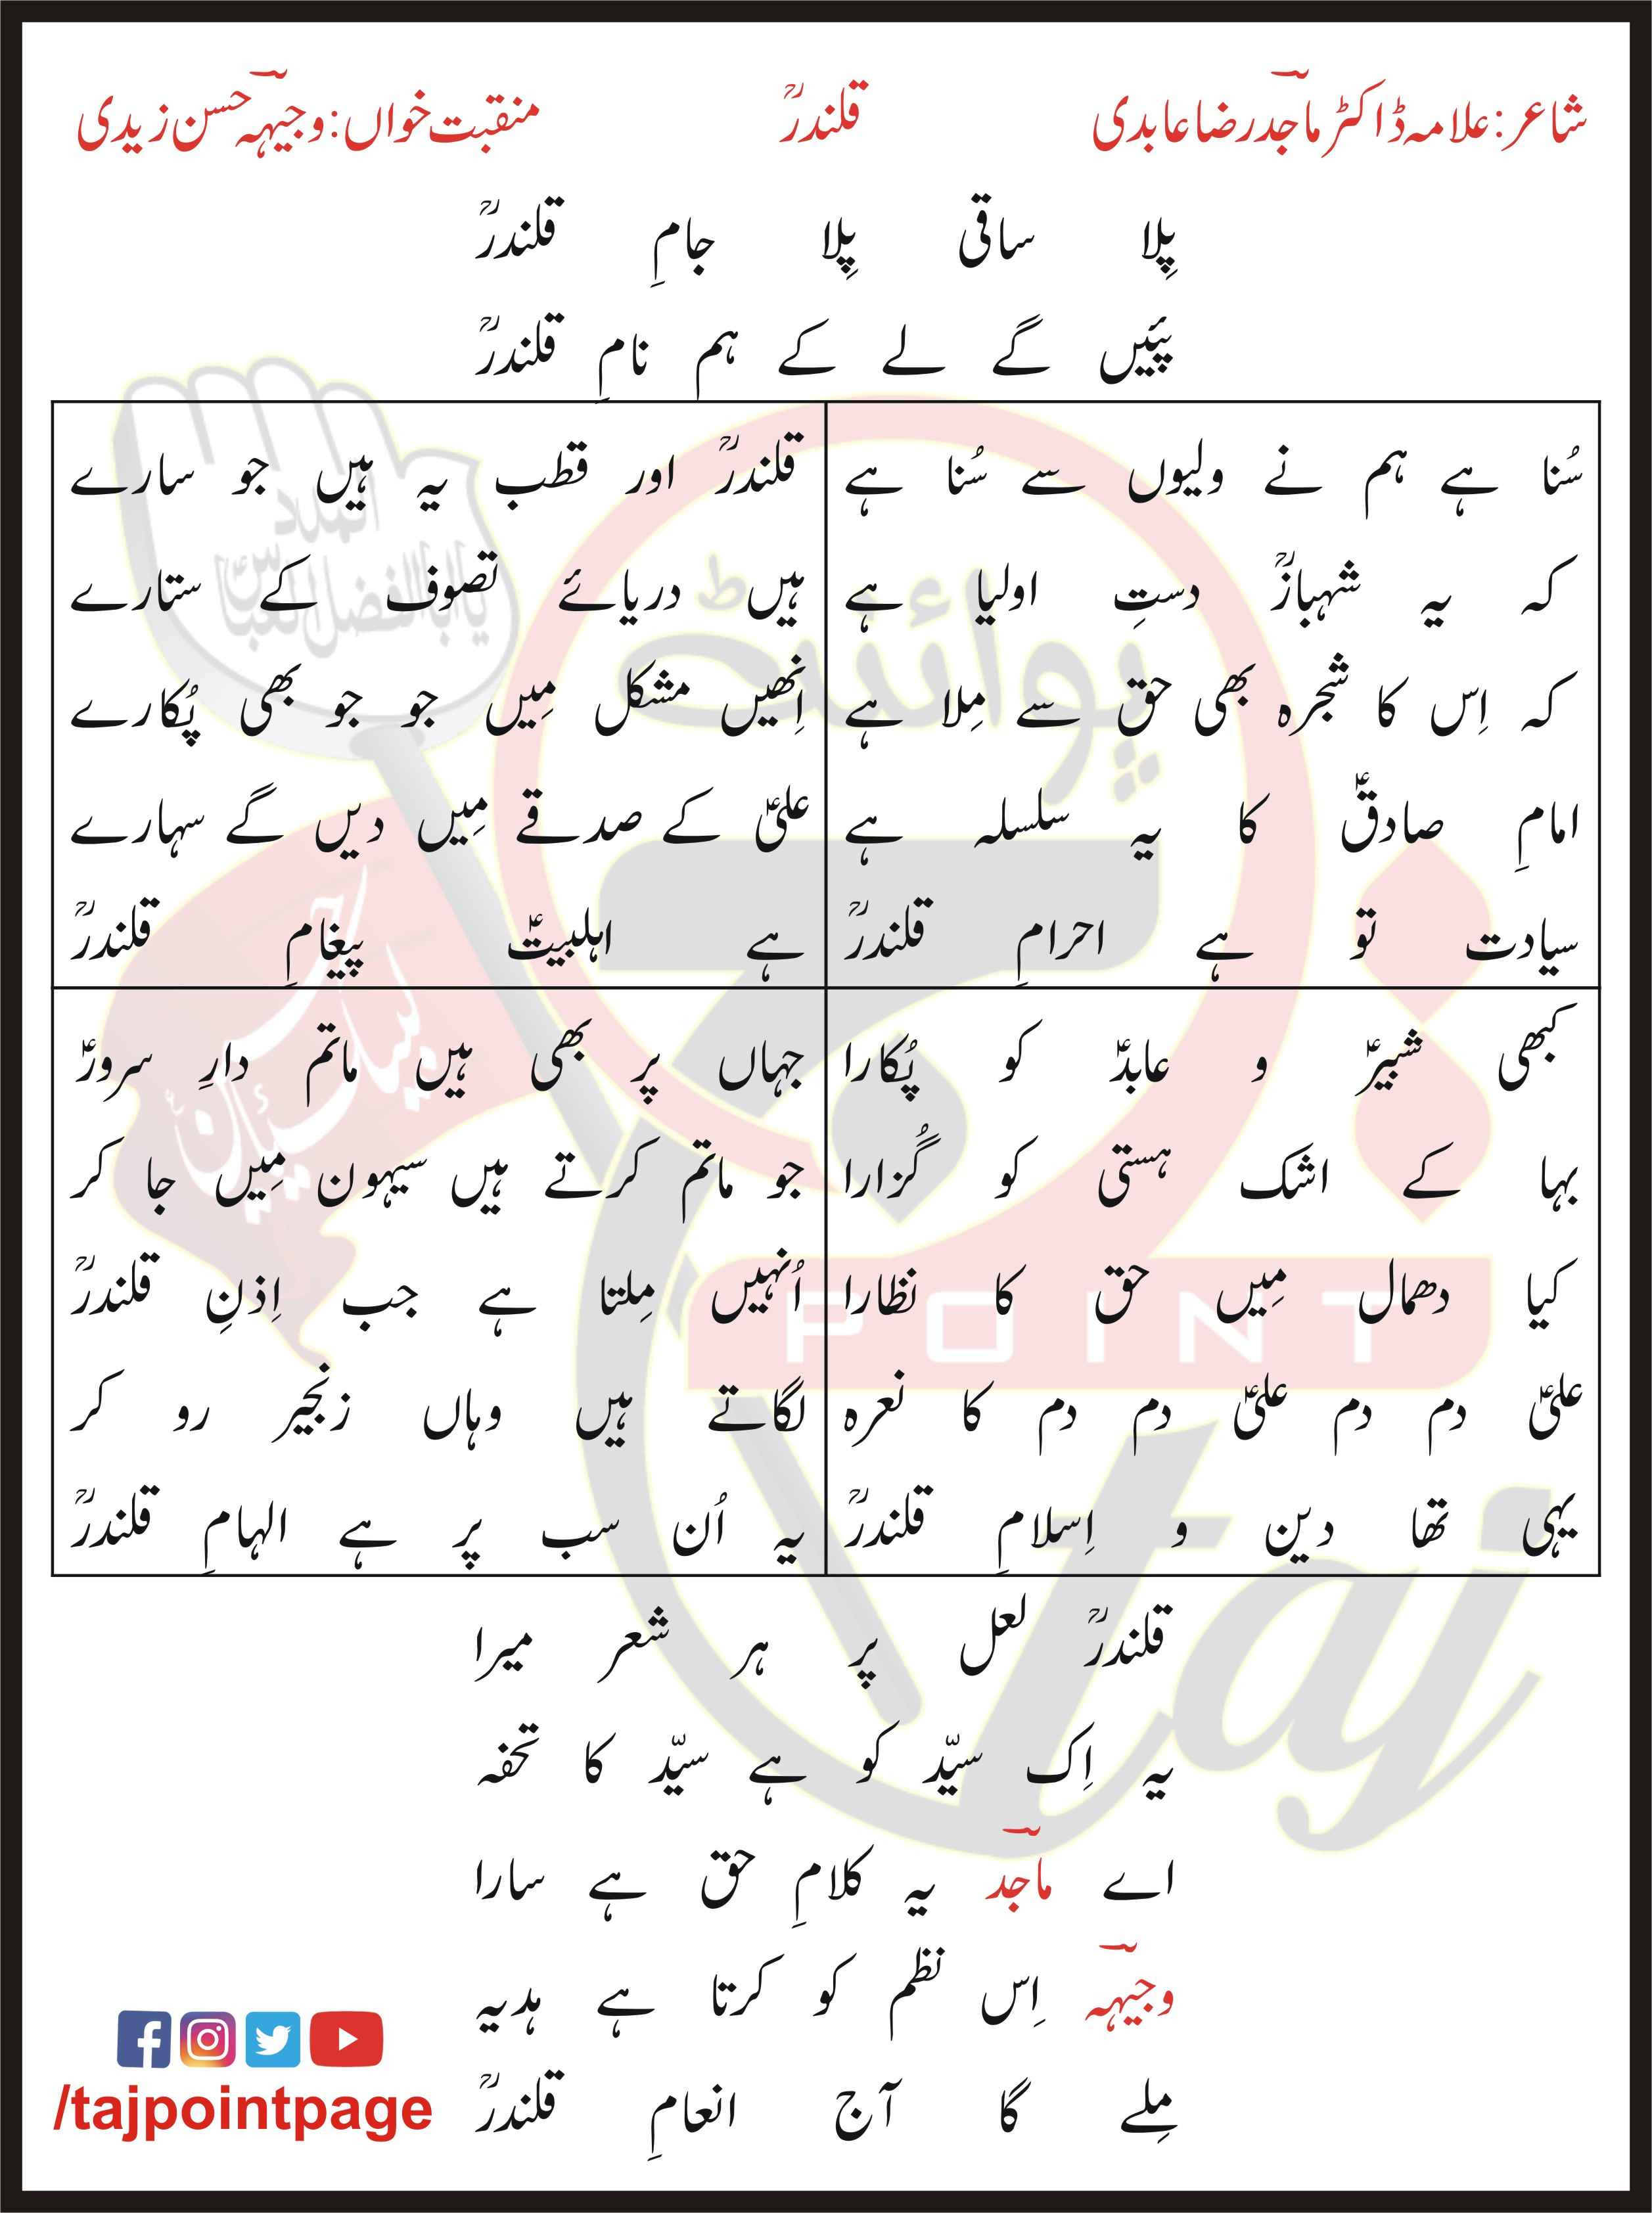 شاعر: علامہ ڈاکٹر ماجد رضا عابدی
قلندرؒ
منقبت خواں: وجیہہ حسن زیدی
پِلا ساقی پِلا جامِ قلندرؒ
پئیں گے لے کے ہم نامِ قلندرؒ
سُنا ہے ہم نے ولیوں سے سُنا ہے
کہ یہ شہبازؒ دستِ اولیا ہے
کہ اِس کا شجرہ بھی حق سے مِلا ہے
امامِ صادقؑ کا یہ سلسلہ ہے
سیادت تو ہے احرامِ قلندرؒ
قلندرؒ اور قطب یہ ہیں جو سارے
ہیں دریائے تصوف کے ستارے
اِنھیں مشکل مِیں جو جو بھی پُکارے
علیؑ کے صدقے مِیں دیں گے سہارے
ہے اہلبیتؑ پیغامِ قلندرؒ
کبھی شبیرؑ و عابدؑ کو پُکارا
بہا کے اشک ہستی کو گُزارا
کیا دھمال مِیں حق کا نظارا
علیؑ دم دم علیؑ دم دم کا نعرہ
یہی تھا دین و اِسلامِ قلندرؒ
جہاں پر بھی ہیں ماتم دارِ سرورؑ
جو ماتم کرتے ہیں سیہون مِیں جا کر
اُنہیں مِلتا ہے جب اِذنِ قلندرؒ
لگاتے ہیں وہاں زنجیر رو کر
یہ اُن سب پر ہے الہامِ قلندرؒ
قلندرؒ لعل پر ہر شعر میرا
یہ اِک سیّد کو ہے سیّد کا تحفہ
اے ماجد یہ کلامِ حق ہے سارا
وجیہہ اِس نظم کو کرتا ہے ہدیہ
مِلے گا آج انعامِ قلندرؒ
/tajpointpage
المدد
یا ابالفضل العباسؑ
لبیک یا حسینؑ
پوائنٹ
POINT
taj